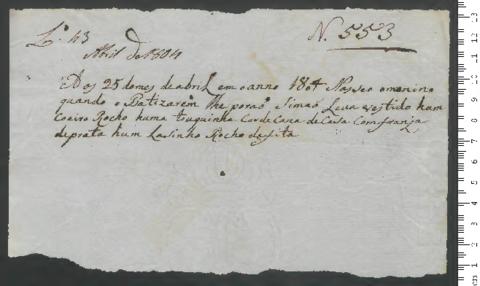 Lº 43
N. 553
Abril De 1804
Aos 25 do mes de abril em o anno 1804 Nasseo o menino
quando o Batizarem lhe porão Simão Leva vestido hum
Coeiro Rocho huma touquinha Cor de Caza de Casa Com franja
de prata hum Lasinho Rocho de fita